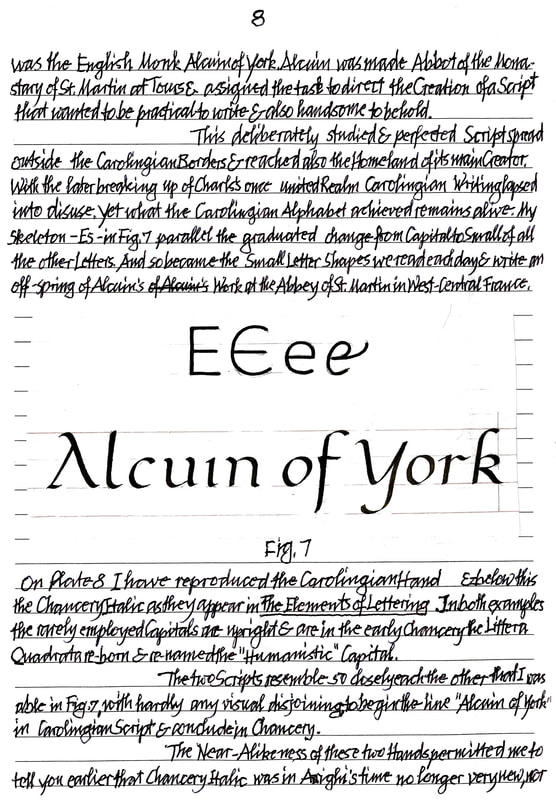 8
was the English Monk Alcuin of York. Alcuin was made Abbot of the Mona-
stary of St. Martin at Tours & assigned the task to direct the Creation of a Script
that wanted to be practical to write & also handsome to behold.
This deliberately studied & perfected Script spread
outside the Carolingian Borders & reached also the Homeland of its main Creator.
With the later breaking up of Charles once united Realm Carolingian Writing lapsed
into disuse. Yet what the Carolingian Alphabet achieved remains alive. My
Skeleton-Es-in Fig.7 parallel the graduated change from Capital to Small of all
the other Letters. And so became the Small Letter Shapes we read each day & write an
off-spring of Alcuin's of Alcuin's Work at the Abbey of St. Martin in West-Central France.
E E e e
Alcuin of York
Fig. 7
On Plate 8 I have reproduced the Carolingian Hand & below this
the Chancery Italic as they appear in The Elements of Lettering. In both examples
the rarely employed Capitals are upright & are in the early Chancery the Littera
Quadrata re-born & re-named the "Humanistic" Capital.
The two Scripts resemble so closely each the other that I was
able in Fig. 7, with hardly any visual disjoining to begin the line "Alcuin of York"
in Carolingian Script & conclude in Chancery.
The Near-Alikeness of these two Hands permitted me to
tell you earlier that Chancery Italic was in Arrighi's time no longer very new, nor